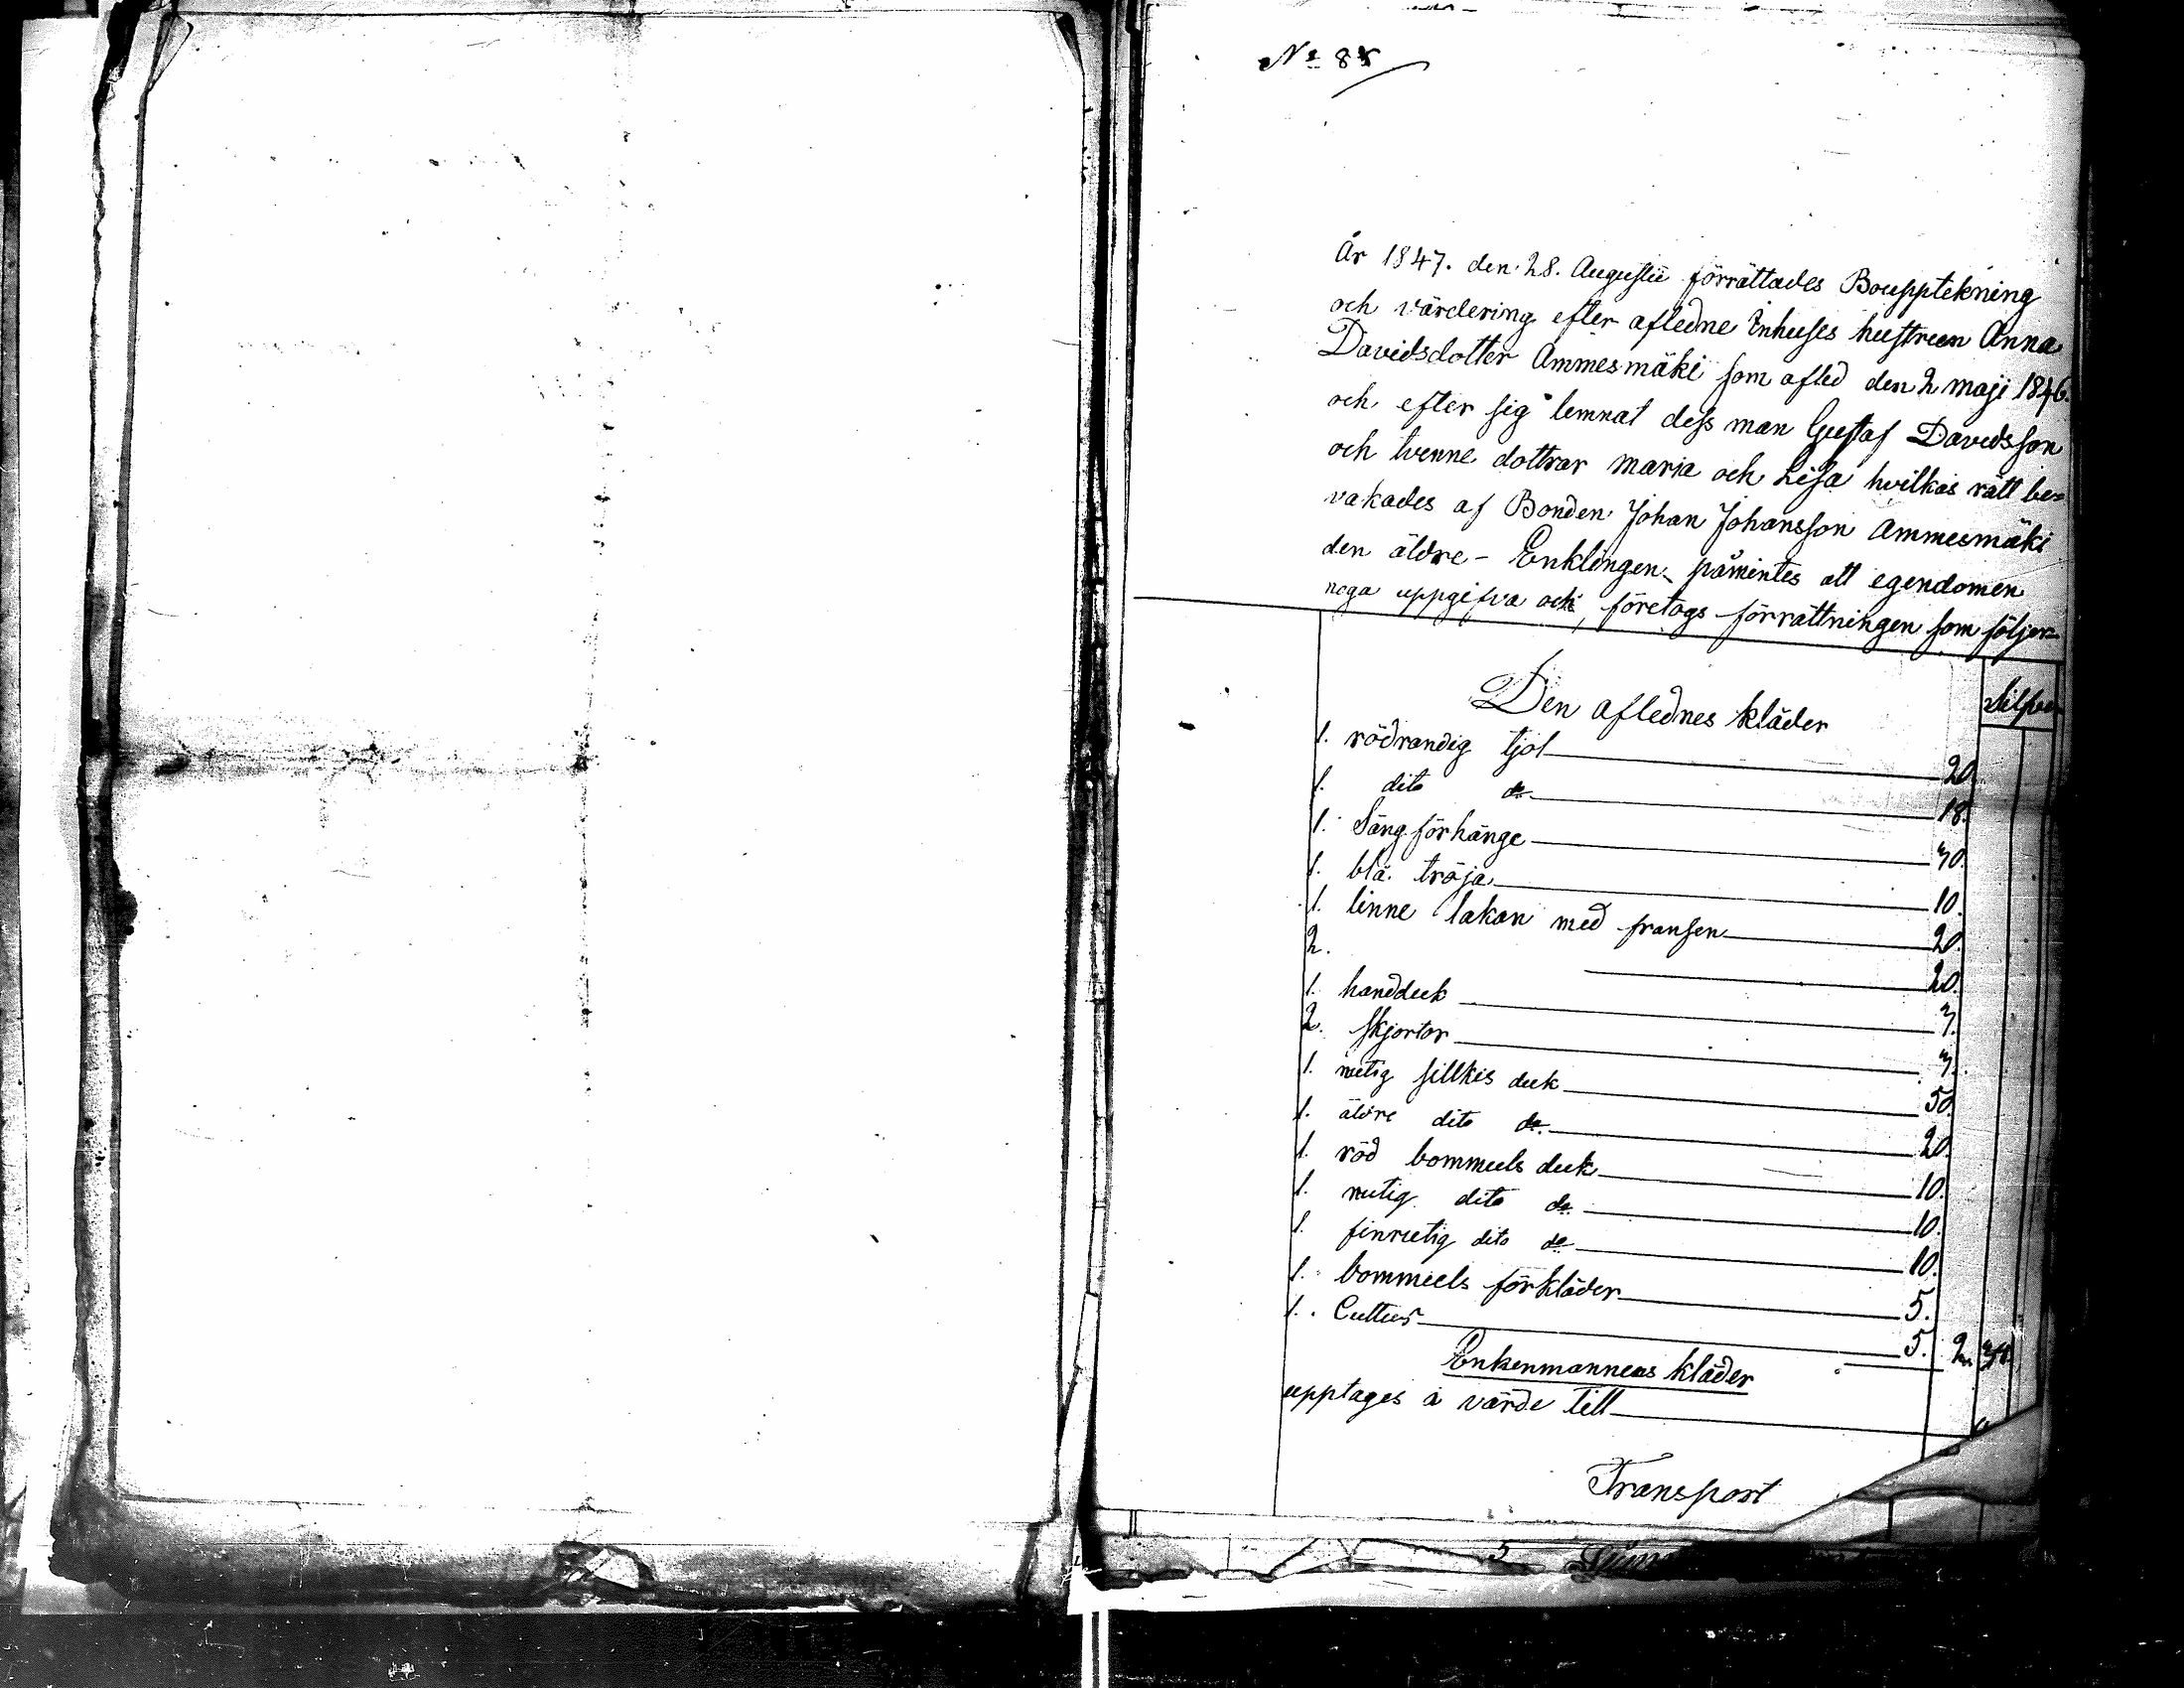 No 88
År 1847. den 28. Augustii förrättades Bouptekning
och värdering efter afledne Inhuses hustrun Anna
Davidsdotter Ammesmäki som afled den 2 maji 1846.
och efter sig lemnat dess man Gustaf Davidsson
och tvenne dottrar Maria och Lisa hvilkas rätt be=
vakades af Bonden Johan Johansson Ammesmäki
den äldre - Enklingen påmintes att egendomen
noga uppgifva och, företogs förrättningen som följer=
Silfver
Den aflednes kläder
1. rödrandig tjol 20
1. dito do 18.
1. Sängförhänge 30.
1. blå tröja 10.
1. linne lakan med fransen 20.
2. 20.
1. handduk 3.
2. skjortor 3.
1. rutig sillkis duk 50.
1. äldre dito do. 20.
1. röd bommuls duk 10.
1. rutig dito do 10.
1. finrutig dito do 10.
1. bommuls förkläder 5.
1. Cuttus 5. 2. 34.
Enkemannens kläder
upptages a värde till
Transport
5